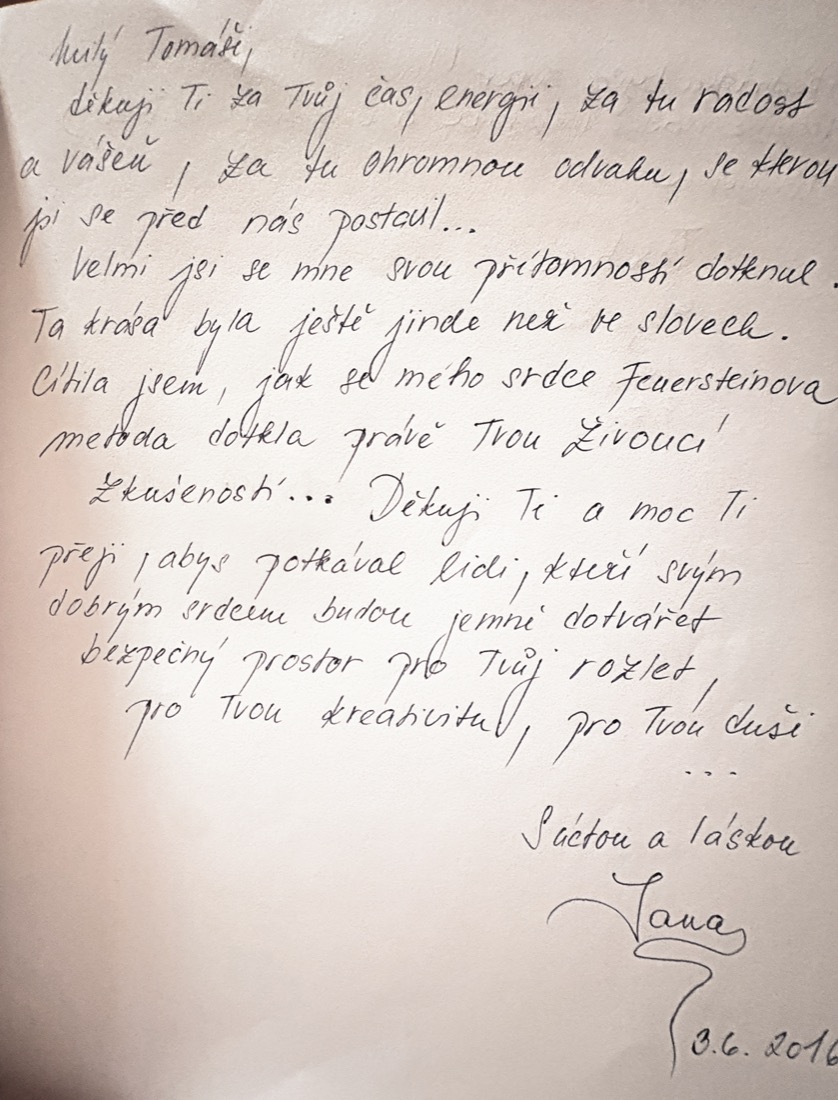 Milý Tomáši,
děkuji Ti za Tvůj čas, energii, za tu radost
a vášeň, za tu ohromnou odvahu, se kterou
jsi se před nás postavil...
Velmi jsi se mne svou přítomností dotknul.
Ta krása byla ještě jinde než ve slovech.
Cítila jsem, jak se mého srdce Feuersteinova
metoda dotkla právě Tvou Živoucí
zkušeností... Děkuji Ti a moc Ti
přeji, abys potkával lidi, kteří svým
dobrým srdcem budou jemně dotvářet
bezpečný prostor pro Tvůj rozlet,
pro Tvou kreativitu, pro Tvou duši
...
S úctou a láskou
Jana
3.6. 2016